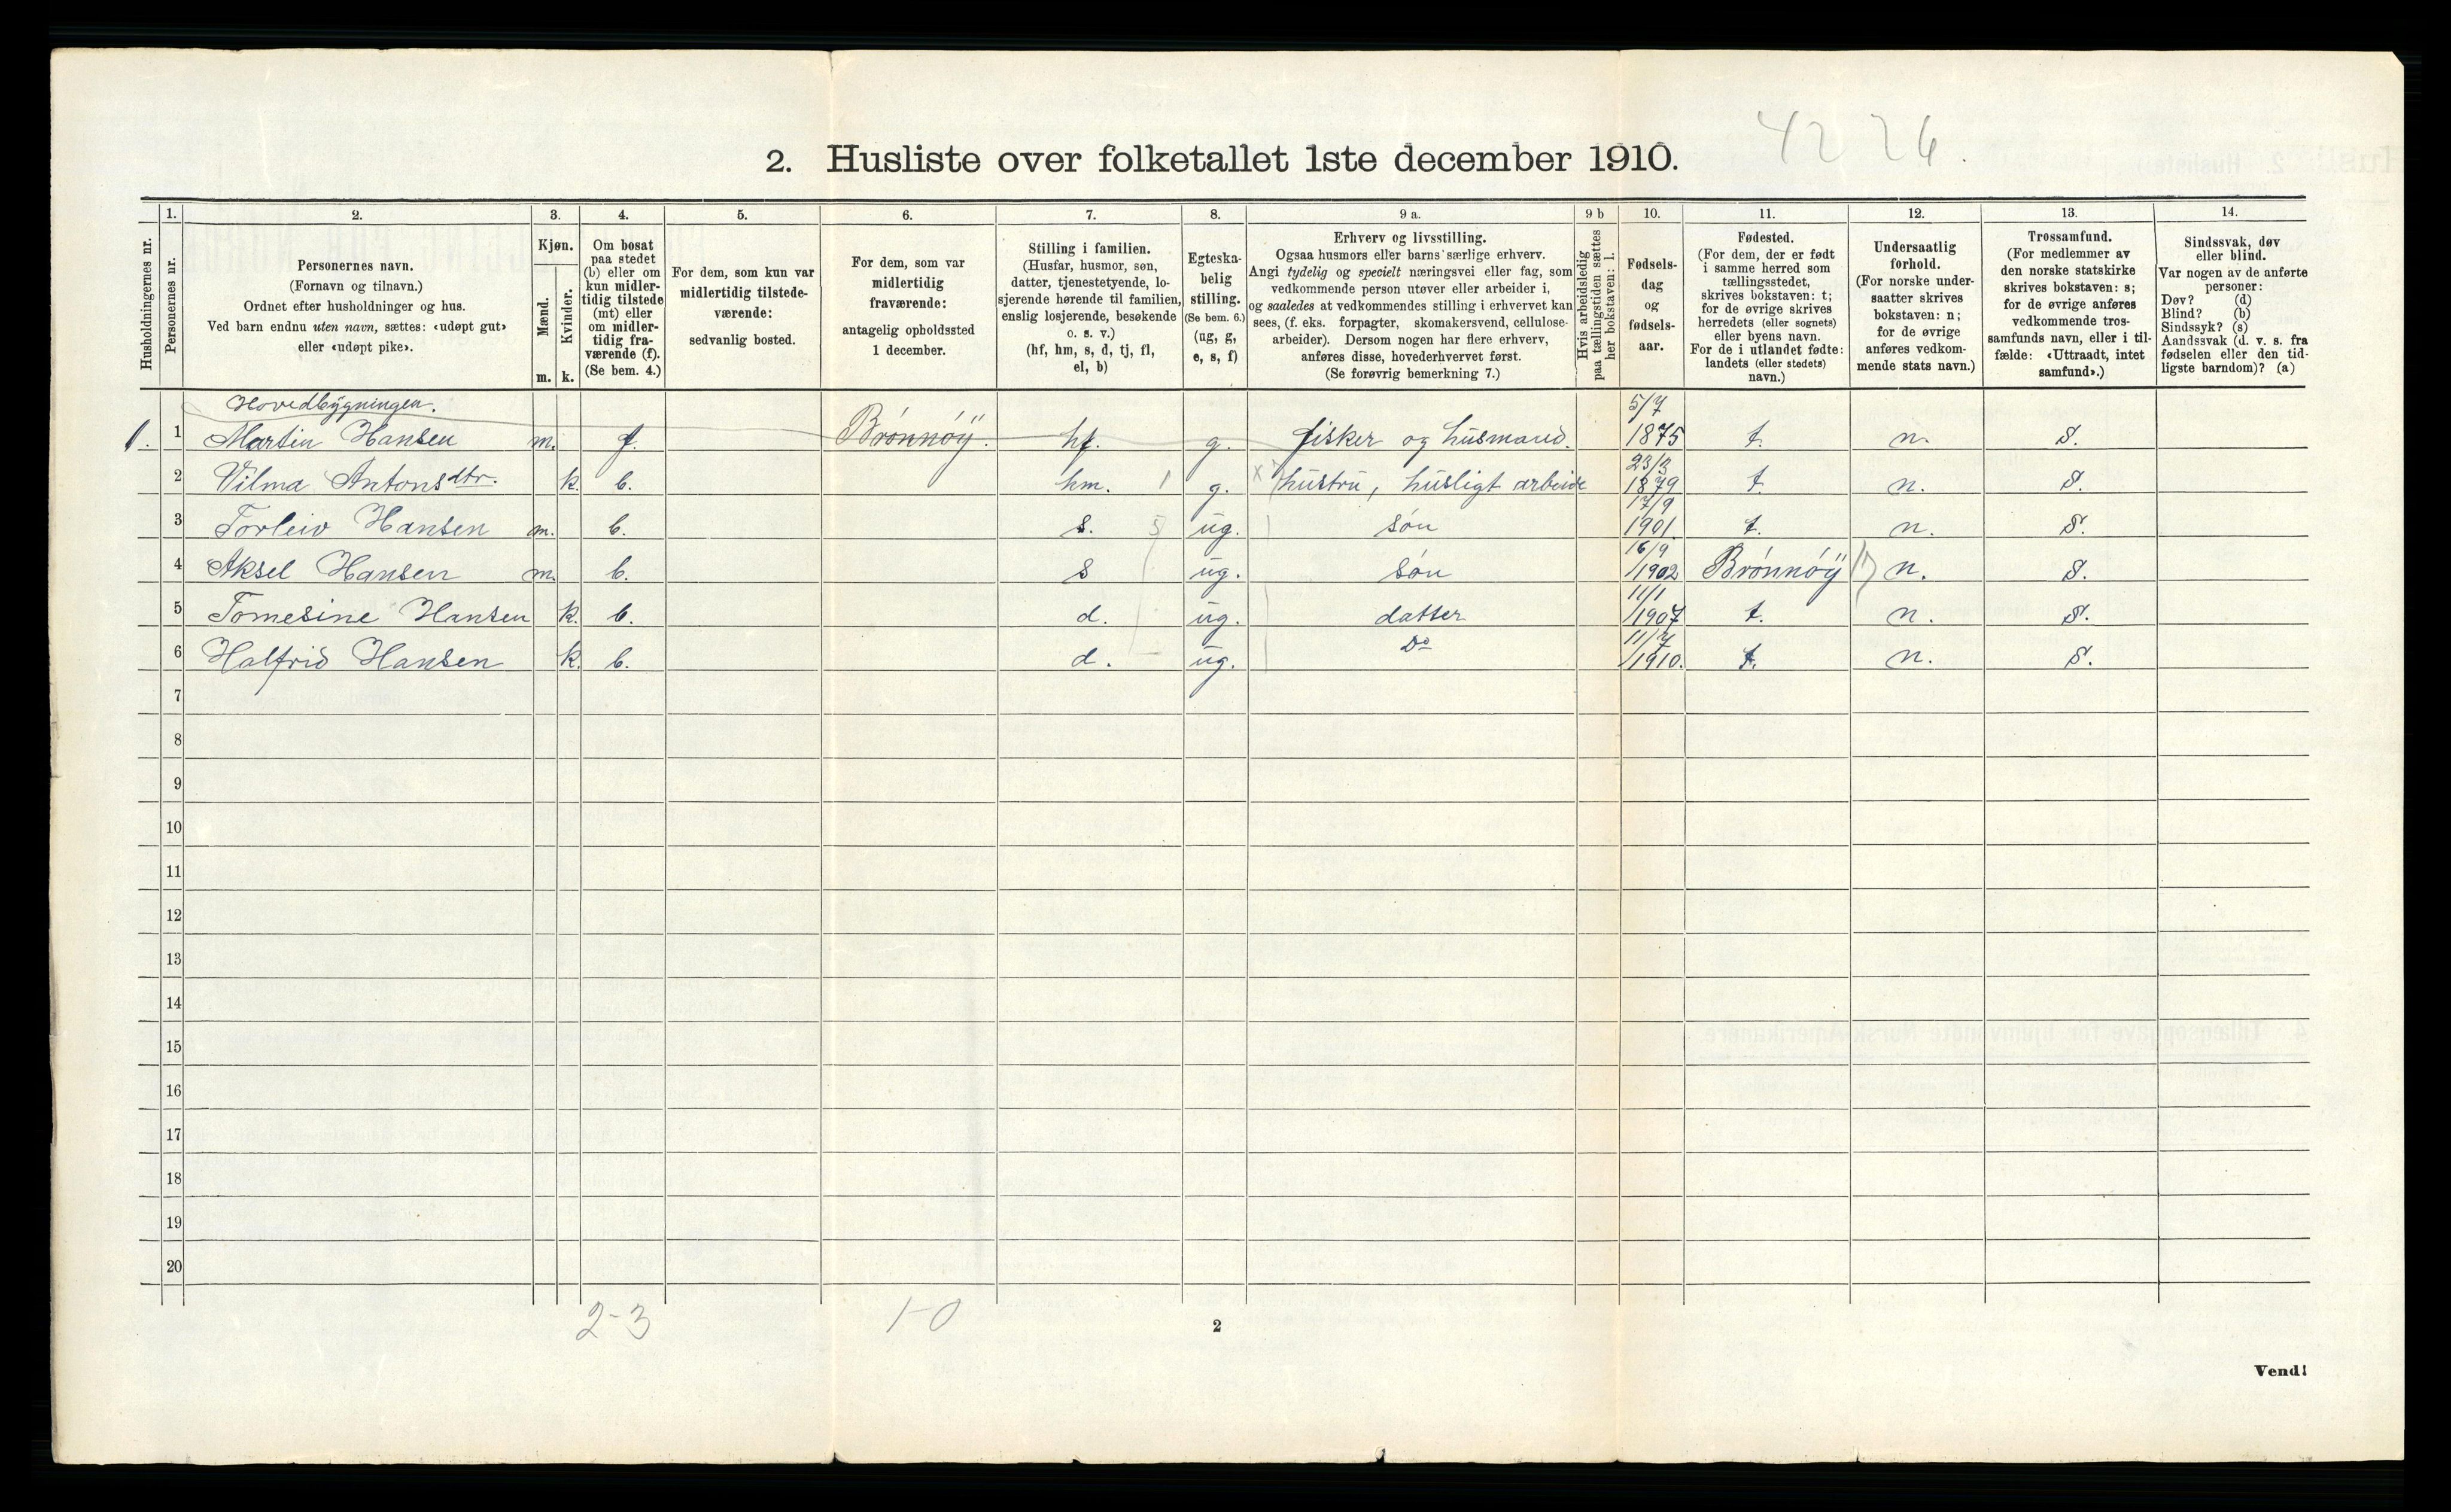 42 26.
2. Husliste over folketallet 1ste december 1910.
Husholdningernes nr.
1.
Personernes nr.
2.
Personernes navn.
(Fornavn og tilnavn.)
Ordnet efter husholdninger og hus.
Ved barn endnu uten navn, sættes: «udøpt gut»
eller «udøpt pike».
3.
Kjøn.
Mænd.
Kvinder.
m. k.
4.
Om bosat
paa stedet
(b) eller om
kun midler-
tidig tilstede
(mt) eller
om midler-
tidig fra-
værende (f).
(Se bem. 4.)
5.
For dem, som kun var
midlertidig tilstede-
værende:
sedvanlig bosted.
6.
For dem, som var
midlertidig
fraværende:
antagelig opholdssted
1 december.
7.
Stilling i familien.
(Husfar, husmor, søn,
datter, tjenestetyende, lo-
sjerende hørende til familien,
enslig losjerende, besøkende
o. s. v.)
(hf, hm, s, d, tj, fl,
el, b)
8.
Egteska-
belig
stilling.
(Se bem. 6.)
(ug, g,
e, s, f)
9 a.
Erhverv og livsstilling.
Ogsaa husmors eller barns særlige erhverv.
Angi tydelig og specielt næringsvei eller fag, som
vedkommende person utøver eller arbeider i,
og saaledes at vedkommendes stilling i erhvervet kan
sees, (f. eks. forpagter, skomakersvend, cellulose-
arbeider). Dersom nogen har flere erhverv,
anføres disse, hovederhvervet først.
(Se forøvrig bemerkning 7.)
9 b
Hvis arbeidsledig
paa tællingstiden sættes
her bokstaven: l.
10.
Fødsels-
dag
og
fødsels-
aar.
11.
Fødested.
(For dem, der er født
i samme herred som
tællingsstedet,
skrives bokstaven: t;
for de øvrige skrives
herredets (eller sognets)
eller byens navn.
For de i utlandet fødte:
landets (eller stedets)
navn.)
12.
Undersaatlig
forhold.
(For norske under-
saatter skrives
bokstaven: n;
for de øvrige
anføres vedkom-
mende stats navn.)
13.
Trossamfund.
(For medlemmer av
den norske statskirke
skrives bokstaven: s;
for de øvrige anføres
vedkommende tros-
samfunds navn, eller i til-
fælde: «Uttraadt, intet
samfund».)
14.
Sindssvak, døv
eller blind.
Var nogen av de anførte
personer:
Døv? (d)
Blind? (b)
Sindssyk? (s)
Aandssvak (d. v. s. fra
fødselen eller den tid-
ligste barndom)? (a)
Hovedbygningen.
1. 1 Martin Hansen m. f. Brønnøy. hf. g. fisker og husmand. 5/7 1875 t. n. S.
2 Vilma Antonsdtr. k. b. hm. 1 g. x hustru, husligt arbeide 23/3 1879 t. n. S.
3 Torleiv Hansen m. b. s. 5 ug. søn 17/9 1901. t. n. S.
4 Aksel Hansen m. b. s ug. søn 16/9 1902 Brønnøy n. S.
5 Tomesine Hansen k. b. d. ug. datter 11/1 1907 t. n. S.
6 Halfrid Hansen k. b. d. ug. Do 11/7 1910. t. n. S.
7
8
9
10
11
12
13
14
15
16
17
18
19
20
2-3 1-0
2
Vend!